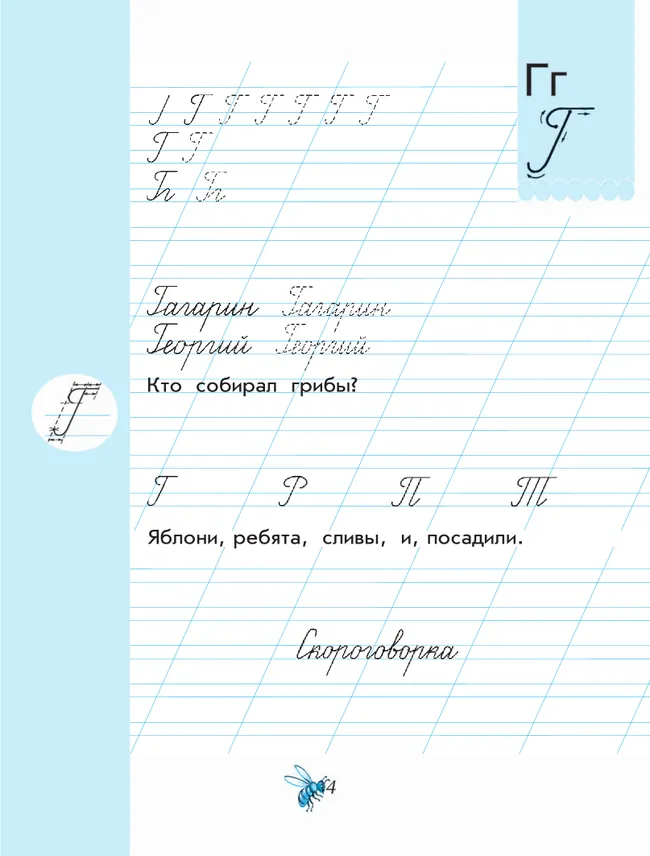 Гг
Г
Г Г Г Г Г Г
Г Г
Ге Ге
Гагарин Гагарин
Георгий Георгий
Кто собирал грибы?
Г
Г Р П Т
Яблони, ребята, сливы, и, посадили.
Скороговорка
4